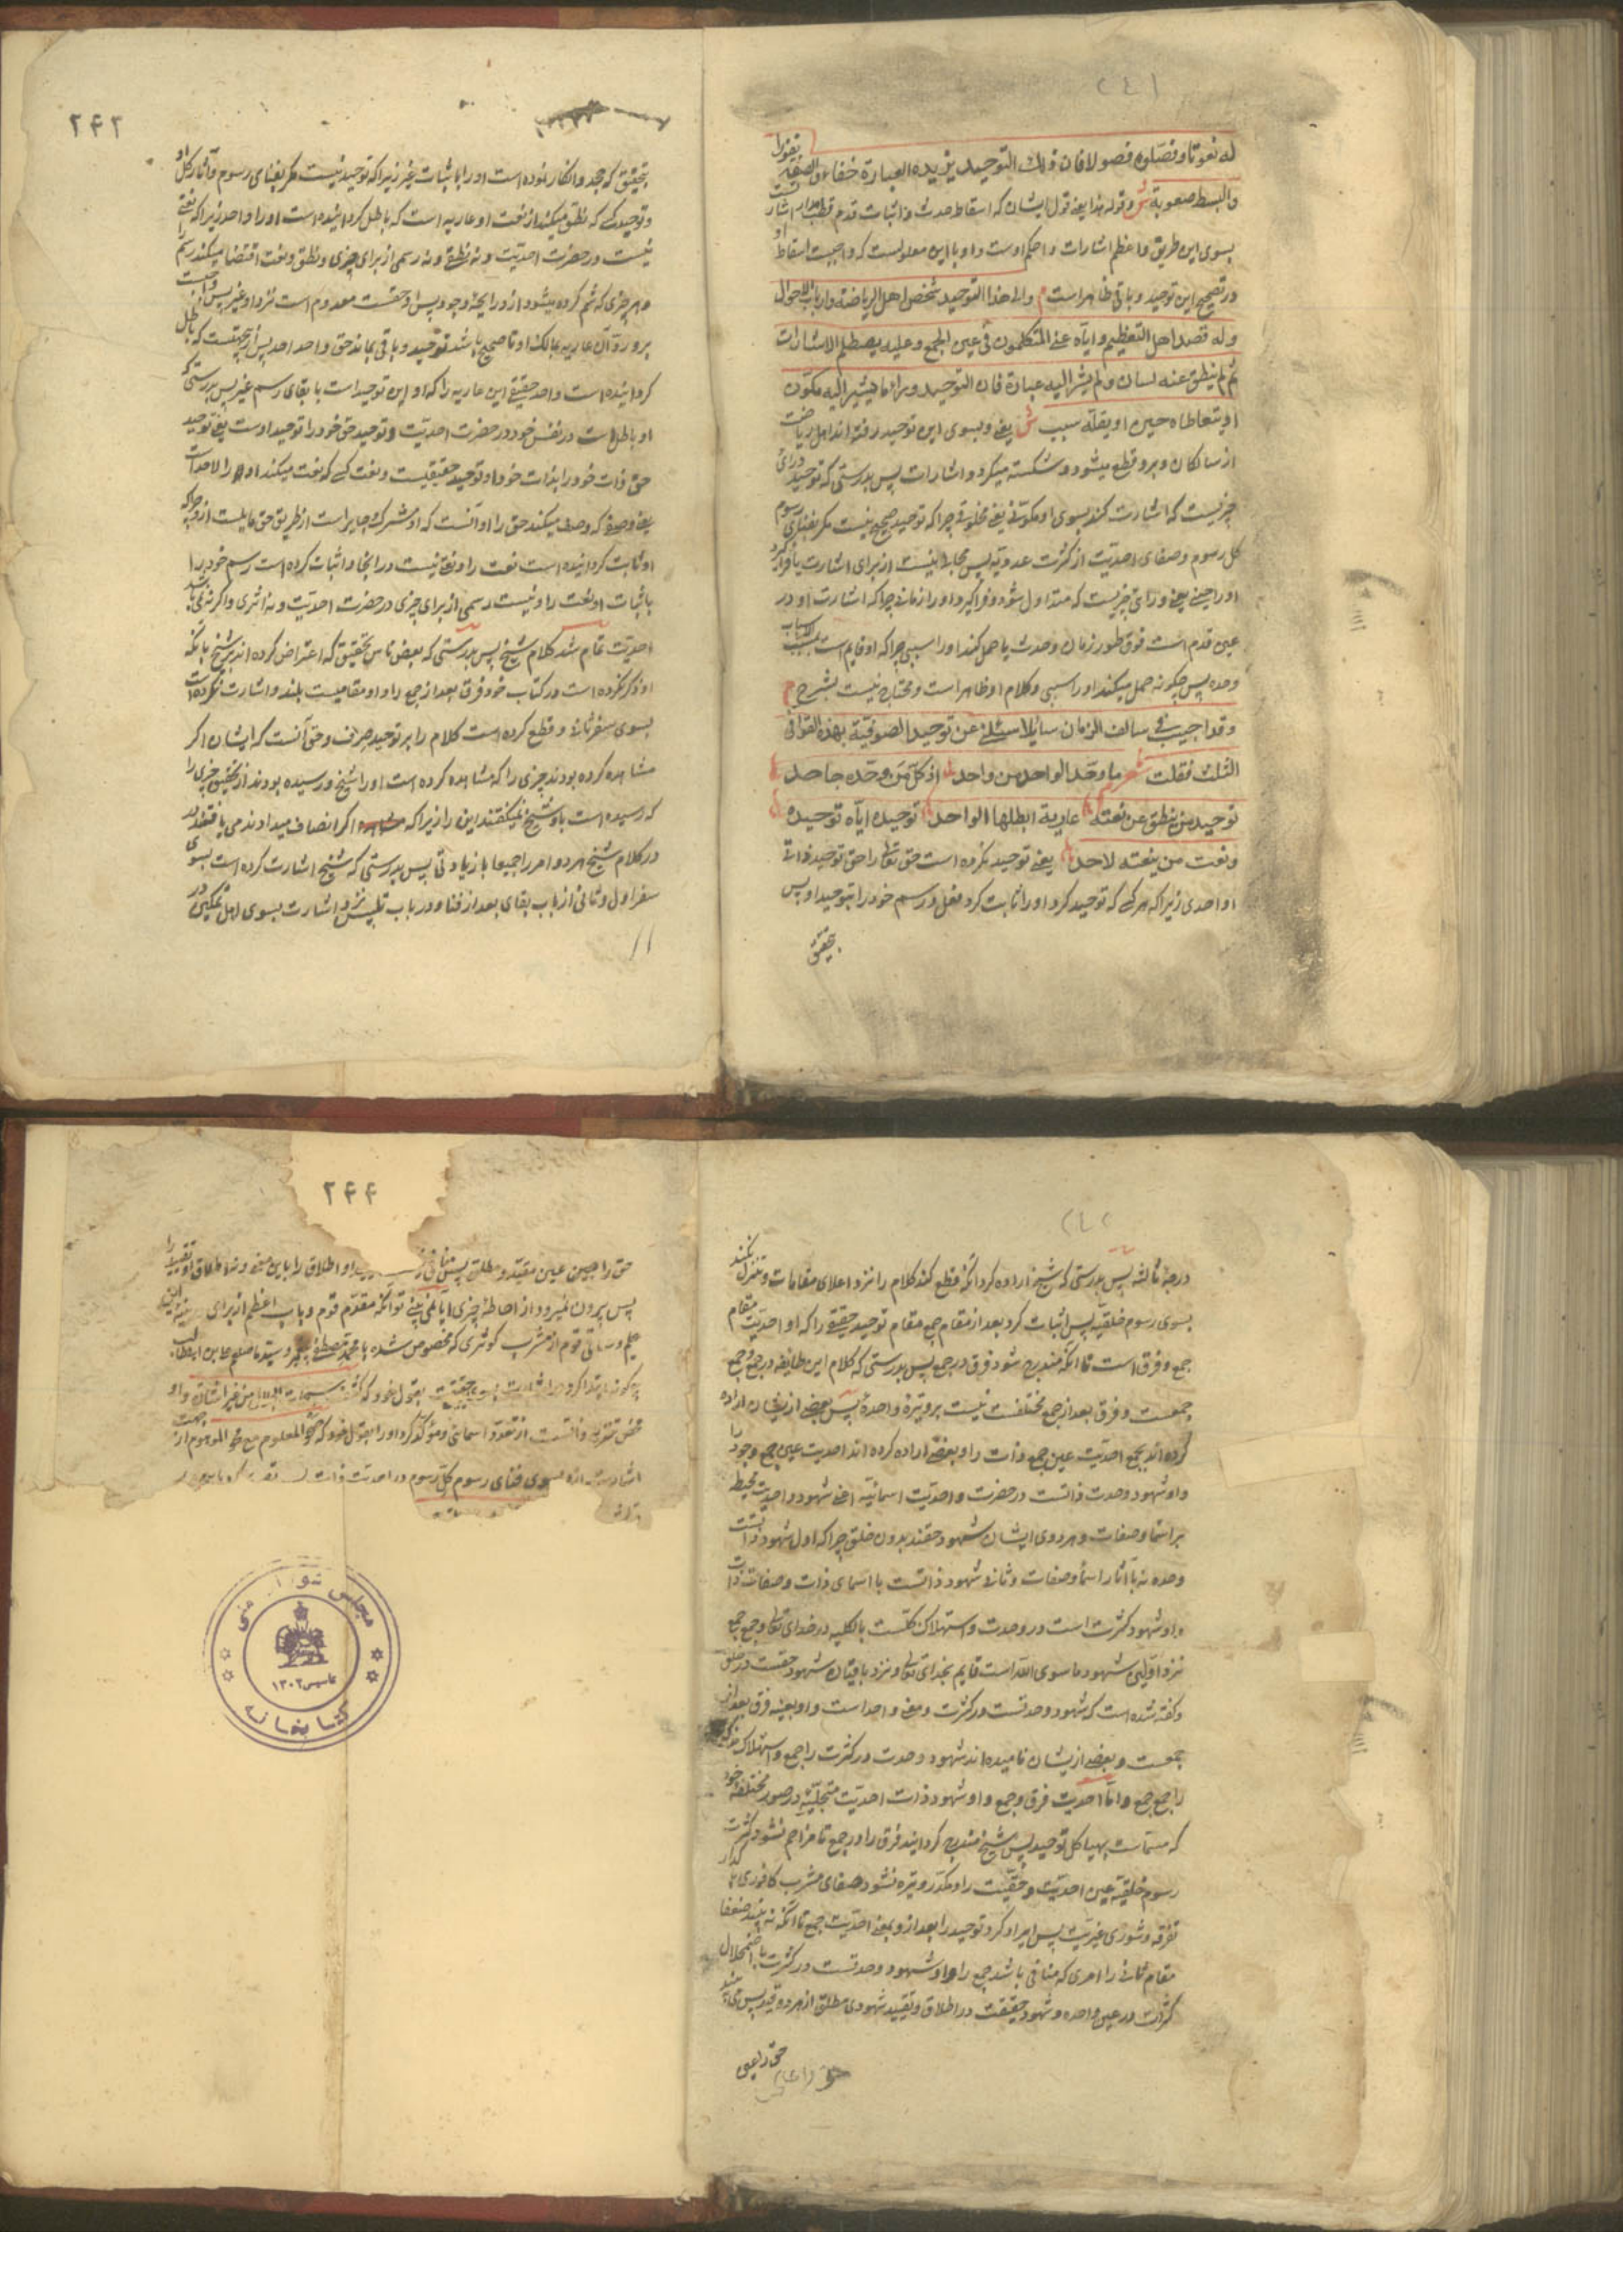 ۲۴۱
له نعوتا وفصّلوه فصولا فان ذلك التوحيد يزيده العبارة خفاء والصفة نفورا
والبسط صعوبة ش وقوله هذا یعنی قول ایشان که اسقاط حدث و اثبات قدم قطب مدار اشارتست
بسوی این طریق و اعظم اشارات و احکم اوست و او با این معلولست که واجبست اسقاط او
در تصحیح این توحید و باقی ظاهر است م والی هذا التوحيد شخص اهل الرياضة وارباب الاحوال
وله قصد اهل التعظيم واياه عنى المتكلمون فى عين الجمع وعليه يصطلم الاشارات
ثم لم ينطق عنه لسان ولم يشر اليه عبارة فان التوحيد وراء ما يشير اليه مكون
او يتعاطاه حين او يقله سبب ش یعنی و بسوی این توحید رفته اند اهل ریاضت
از سالکان و برو قطع میشود و شکسته میگردد اشارات پس بدرستی که توحید ورای
چیزیست که اشارت کند بسوی او مکونی یعنی مخلوقی چرا که توحید صحیح نیست مگر بفنای رسوم
کل رسوم و صفای احدیت از کثرت عددیه پس مجال نیست از برای اشارت یا فراگیرد
او را حینی یعنی ورای چیزیست که متداول شود و فراگیرد او را زمانی چرا که اشارت او در
عین قدم است فوق طور زمان و حدث یا حمل کند او را سببی چرا که او قایم است بمسبب الاسباب
وحده پس چگونه حمل میکند او را سببی و کلام او ظاهر است و محتاج نیست بشرح م
وقد اجبت فى سالف الزمان سائلا سئلنى عن توحيد الصوفية بهذه القوافى
الثلث فقلت شعر ما وحّد الواحد من واحد اذ كل من وحّده جاحد
توحيد من ينطق عن نعته عارية ابطلها الواحد توحيده اياه توحيده
ونعت من ينعته لاحد یعنی توحید نکرده است حق تعالی را حق توحید ذاتی
او احدی زیرا که هر کسی که توحید کرد او را ثابت کرد فعل و رسم خود را بتوحید او پس
بتحقیق
۲۴۲
بتحقیق که جحد و انکار نموده است او را باثبات غیر زیرا که توحید نیست مگر بفنای رسوم و آثار کل او
و توحید کسی که نطق میکند از نعت او عاریه است که باطل گردانیده است او را واحد زیرا که نعتی
نیست در حضرت احدیت و نه نطقی و نه رسمی از برای چیزی و نطق و نعت اقتضا میکند رسم را
و هر چیزی که شم کرده میشود ازو رایحۀ وجود پس او حقست معدوم است نزد او غیر پس واجبست
برو رد آن عاریه بمالک او تا صحیح باشد توحید و باقی بماند حق واحد احد پس از اینجهتست که باطل
گردانیده است واحد حقیقی این عاریه را که او این توحید است با بقای رسم غیر پس بدرستی که
او باطل است در نفس خود در حضرت احدیت و توحید حق خود را توحید اوست یعنی توحید
حق ذات خود را بذات خود او توحید حقیقیست و نعت کسی که نعت میکند او را لاحد است
یعنی وصفی که وصف میکند حق را او آنست که او مشرک و جایر است از طریق حق مایلست ازو چرا که
او ثابت گردانیده است نعت را و نعتی نیست در اینجا و اثبات کرده است رسم خود را
باثبات او نعت را و نیست رسمی از برای چیزی در حضرت احدیت و نه اثری و اگر نه نمی باشد
احدیت تمام شد کلام شیخ پس بدرستی که بعض ناس تحقیق که اعتراض کرده اند بر شیخ بآنکه
او ذکر نکرده است در کتاب خود فرق بعد از جمع را و او مقامیست بلند و اشارت نکرده است
بسوی سفر ثانی و قطع کرده است کلام را بر توحید صرف و حق آنست که ایشان اگر
مشاهده کرده بودند چیزی را که مشاهده کرده است او را شیخ و رسیده بودند از تحقیق چیزی را
که رسیده است باو شیخ نمیگفتند این را زیرا که اگر انصاف میدادند می یافتند
در کلام شیخ هر دو امر را جمیعا با زیادتی پس بدرستی که شیخ اشارت کرده است بسوی
سفر اول و ثانی از باب بقای بعد از فنا و در باب تلبیس نزد اشارت بسوی اهل تمکین در
درجۀ ثالثه پس بدرستی که شیخ اراده کرد آنکه قطع کند کلام را نزد اعلای مقامات و تنزل نکند
بسوی رسوم خلقیه پس اثبات کرد بعد از مقام جمع مقام توحید حقیقی را که او احدیت مقام
جمع و فرق است تا آنکه مندرج شود فرق در جمع پس بدرستی که کلام این طایفه در جمع و جمع
جمعست و فرق بعد از جمع مختلفست نیست بر وتیرۀ واحده پس بعضی ازیشان اراده
کرده اند بجمع احدیت عین جمع ذات را و بعضی اراده کرده اند احدیت عین جمع وجود را
و او شهود وحدت ذاتست در حضرت واحدیت اسمائیه اعنی شهود واحدیت محیط
بر اسما و صفات و هر دوی ایشان شهود حقند بدون خلق چرا که اول شهود ذاتست
وحده نه با آثار اسما و صفات و ثانی شهود ذاتست با اسمای ذات و صفات ذات
و او شهود کثرت است در وحدت و استهلاک کلست بالکلیه در خدای تعالی و جمع جمع
نزد اولین شهود ما سوی الله است قایم بخدای تعالی و نزد باقیان شهود حقست در خلق
و گفته شده است که شهود وحدتست در کثرت و معنی واحد است و او بعینه فرق بعد از
جمعست و بعضی ازیشان نامیده اند شهود وحدت در کثرت را جمع و استهلاک
را جمع جمع و اما احدیت فرق و جمع و او شهود ذات احدیت متجلیه در صور مختلفه خود
که مسماست بهیاکل توحید پس شیخ مندرج گردانید فرق را در جمع تا مزاحم نشود کثرت
رسوم خلقیه عین احدیت و حقیت را و مکدر و تیره نشود صفای مشرب کافوری
تفرقه و شوری غیریت پس ایراد کرد توحید را بعد ازو بمعنی احدیت جمع تا آنکه نه بیند ضعفا
مقام ثانی را امری که منافی باشد جمع را و او شهود وحدتست در کثرت با اضمحلال
کثرات در عین واحده و شهود حقیقت در اطلاق و تقیید شهودی مطلق از هر دو قید پس می بیند
حق را عین
۲۴۴
حق را عین عین مقید و مطلق پس منافی او اطلاق را باین معنی و نه اطلاق او تقیید را
پس بیرون نمیرود از احاطۀ او چیزی آیا نمی بینی تو آنکه مقدم قوم و باب اعظم از برای مدینه
علم و ساقی قوم از مشرب کوثری که مخصوص شده با محمد مصطفی
چگونه ابتدا کرد در اشارت بسوی حقیقت بقول خود که کشف سبحات الجلال من غير اشارة و او
محض تفرید ذاتست از تعدد اسمائی و مؤکد کرد او را بقول خود که محو الموهوم مع صحو المعلوم از جهت
اشارت بسوی فنای رسوم کل رسوم در احدیت ذات
مجلس شورای ملی
تاسیس ۱۳۰۲
کتابخانه